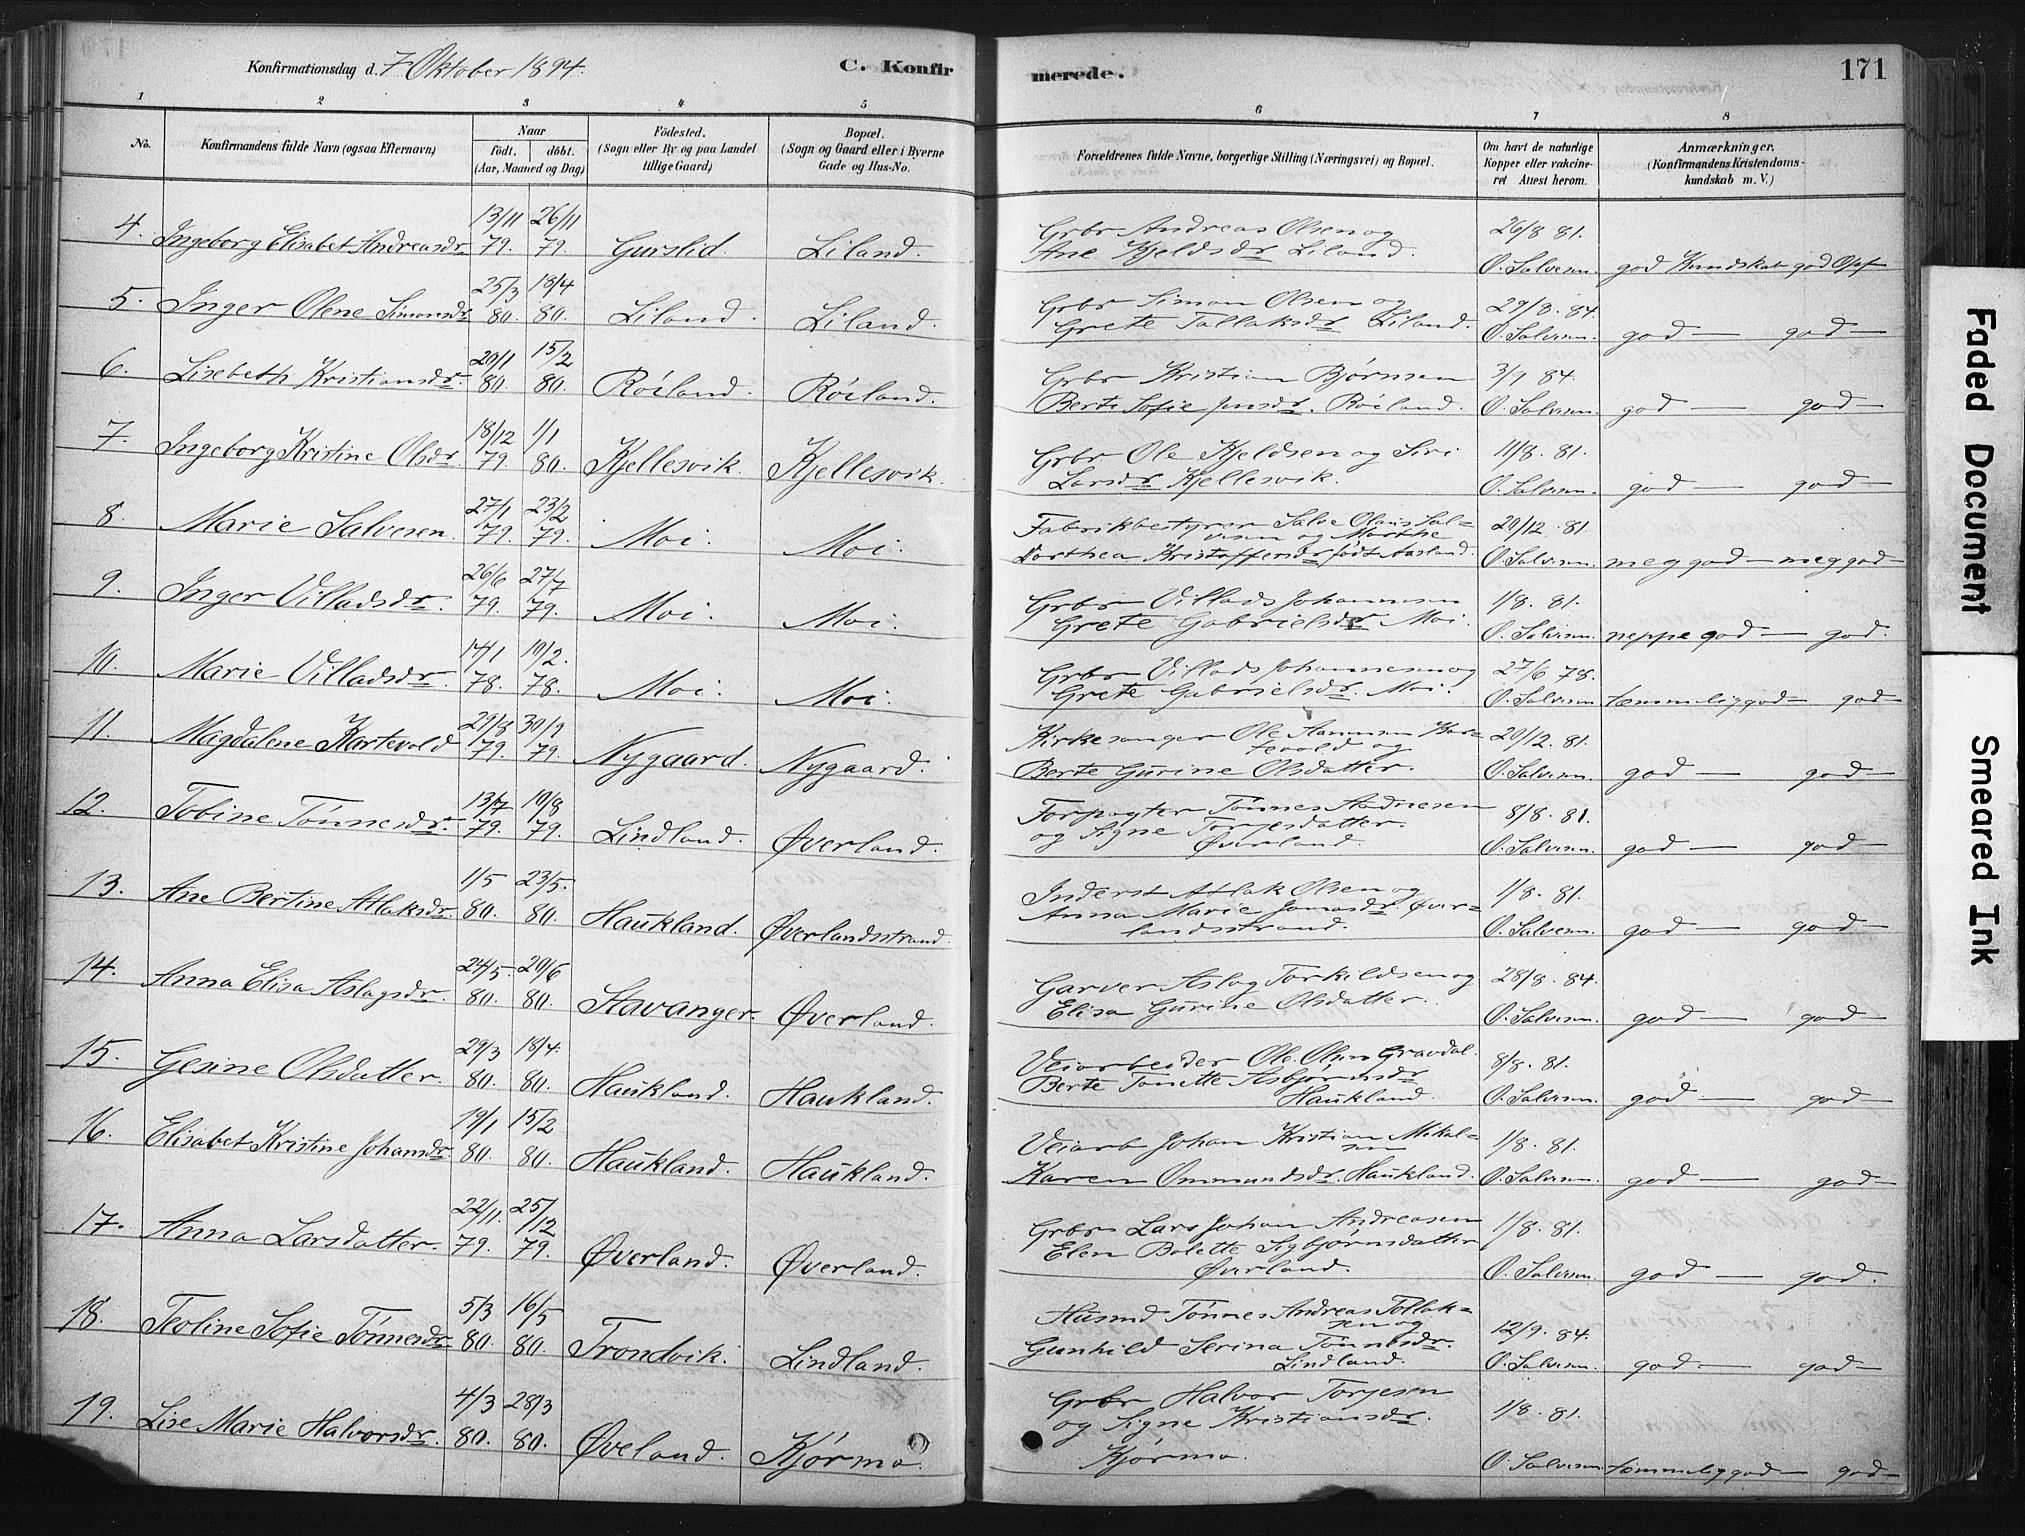 Konfirmationsdag d. 7 Oktober 1894. C. Konfirmerede. 171
1 2 3 4 5 6 7 8
No. Konfirmandens fulde Navn (ogsaa Efternavn)
Naar
födt. döbt.
(Aar, Maaned og Dag)
Födested.
(Sogn eller By og paa Landet
tillige Gaard)
Bopæl.
(Sogn og Gaard eller i Byerne
Gade og Hus-No.
Forældrenes fulde Navne, borgerlige Stilling (Næringsvei) og Bopæl.
Om havt de naturlige
Kopper eller vakcine-
ret Attest herom.
Anmærkninger.
(Konfirmandens Kristendoms-
kundskab m. V.)
4. Ingeborg Elisabet Andreasdr 13/11 79. 26/11 79. Gurslid. Liland.
Grbr Andreas Olsen og
Ane Kjeldsdr Liland.
26/8 81.
O. Salvesen. god Kundskab god Opf
5. Inger Olene Simonsdr 25/3 80. 18/4 80. Liland. Liland.
Grbr Simon Olsen og
Grete Tollaksdr Liland.
29/8. 84.
O. Salvesen. god — god —
6. Lisebeth Kristiansdr. 20/1 80. 15/2 80. Röiland. Röiland.
Grbr Kristian Bjørnsen
Berte Sofie Jensdr. Röiland.
3/9 84.
O. Salvesen. god — god —
7. Ingeborg Kristine Olsdr. 18/12 79. 1/1 80. Kjellesvik. Kjellesvik.
Grbr Ole Kjeldsen og Siri
Larsdr Kjellesvik.
11/8. 81.
O. Salvesen. god — god —
8. Marie Salvesen. 27/1 79. 23/2 79. Moi. Moi.
Fabrikbestyrer Salve Olaus Sal=
vesen og Marthe
Dorthea Kristoffersdr født Aasland.
20/12. 81.
O. Salvesen. meg god — meg god —
9. Inger Villadsdr. 26/6 79. 27/7 79. Moi. Moi.
Grbr Villads Johannesen
Grete Gabrielsdr Moi.
1/8. 81.
O. Salvesen. neppe god — god.
10. Marie Villadsdr. 14/1 78. 10/2. 78. Moi. Moi.
Grbr Villads Johannesen og
Grete Gabrielsdr. Moi.
27/6 78.
O. Salvesen temmelig god — god —
11. Magdalene Kartevold 29/8 79. 30/9 79. Nygaard. Nygaard.
Kirkesanger Ole Kar=
tevold og
Berte Gurine Olsdatter.
20/12. 81.
O. Salvesen. god — god —
12. Tobine Tönnesdr. 13/7 79. 10/8 79. Lindland. Øverland.
Forpagter Tönnes Aadnesen
og Signe Torjesdatter.
Øverland.
8/8. 81.
O. Salvesen. god — god —
13. Ane Bertine Atlaksdr. 1/5 80. 23/5. 80. Haukland. Øverlandsstrand.
Inderst Atlak Olsen og
Anna Marie Jonasdr. Øver=
landsstrand.
1/8. 81.
O. Salvesen. god — god —
14. Anna Elisa Aslagsdr. 24/5. 80. 20/6 80. Stavanger. Øverland.
Garver Aslag Torkildsen og
Elisa Gurine Olsdatter.
28/8. 84.
O. Salvesen. god — god —
15. Gesine Olsdatter. 29/3 80. 18/4. 80. Haukland. Haukland.
Veiarbeider Ole Olsen Gravdal.
Berte Tonette Asbjörnsdr
Haukland.
8/8. 81.
O. Salvesen. god — god —
16. Elisabet Kristine Johansdr. 19/1 80. 15/2 80. Haukland. Haukland.
Veiarb Johan Kristian Mikal=
sen
Karen Ommundsdr. Haukland.
1/8. 81.
O. Salvesen. god — god —
17. Anna Larsdatter. 22/11. 79. 25/12 79. Øverland. Øverland.
Grbr Lars Johan Andreasen
Elen Bolette Sigbjørnsdatter
Øverland.
1/8. 81.
O. Salvesen. god — god.
18. Teoline Sofie Tönnesdr 5/3 80. 16/5 80. Trondvik. Lindland.
Husmd Tönnes Andreas Tollak=
sen og
Gunhild Serina Tönnesdr.
Lindland.
12/9. 84.
O. Salvesen. god — god —
19. Lise Marie Halvorsdr. 4/3 80. 28/3 80. Øveland. Kjörmo.
Grbr Halvor Torjesen
og Signe Kristiansdr.
Kjörmo.
1/8. 81.
O. Salvesen temmelig god — god —
Faded Document
Smeared Ink